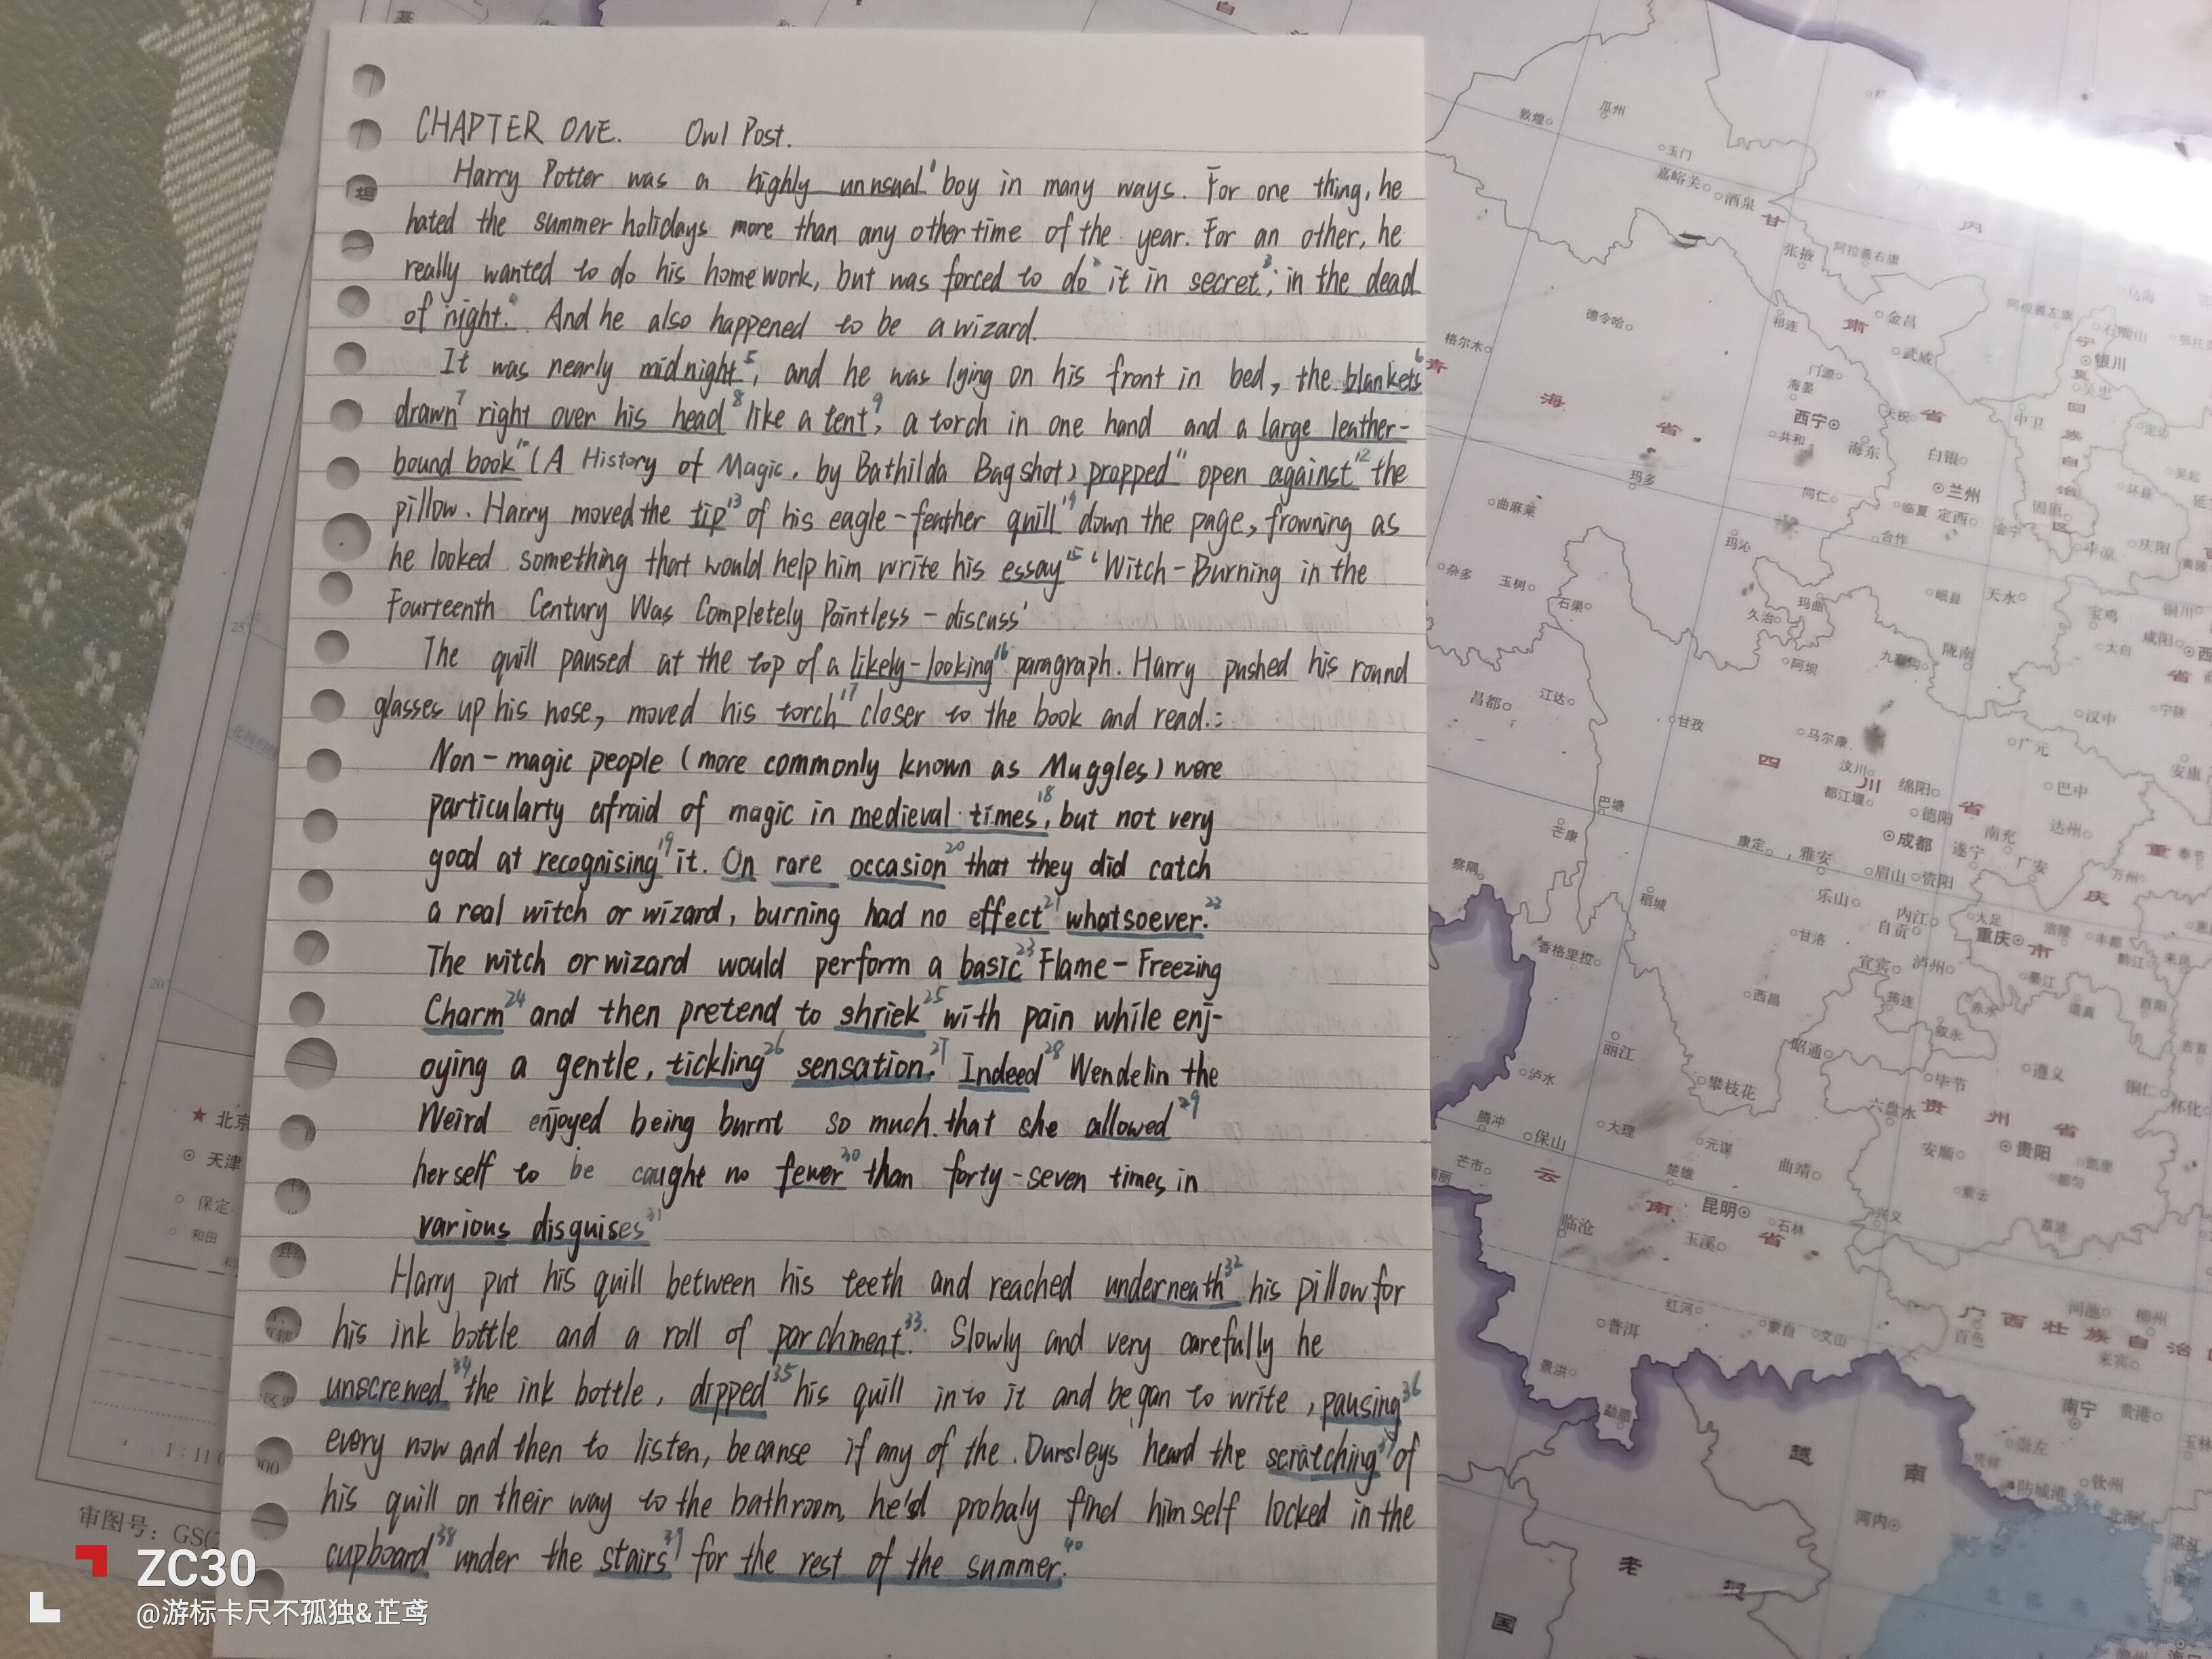 CHAPTER ONE. Owl Post.
Harry Potter was a highly unusual¹ boy in many ways. For one thing, he
hated the summer holidays more than any other time of the year. For an other, he
really wanted to do his homework, but was forced to do² it in secret³, in the dead
of night.⁴ And he also happened to be a wizard.
It was nearly midnight⁵, and he was lying on his front in bed, the blankets⁶
drawn⁷ right over his head⁸ like a tent⁹, a torch in one hand and a large leather-
bound book¹⁰ (A History of Magic, by Bathilda Bagshot) propped¹¹ open against¹² the
pillow. Harry moved the tip¹³ of his eagle-feather quill¹⁴ down the page, frowning as
he looked something that would help him write his essay¹⁵ 'Witch-Burning in the
Fourteenth Century Was Completely Pointless - discuss'
The quill paused at the top of a likely-looking¹⁶ paragraph. Harry pushed his round
glasses up his nose, moved his torch¹⁷ closer to the book and read.:
Non-magic people (more commonly known as Muggles) were
particularty afraid of magic in medieval times¹⁸, but not very
good at recognising¹⁹ it. On rare occasion²⁰ that they did catch
a real witch or wizard, burning had no effect²¹ whatsoever.²²
The witch or wizard would perform a basic²³ Flame-Freezing
Charm²⁴ and then pretend to shriek²⁵ with pain while enj-
oying a gentle, tickling²⁶ sensation.²⁷ Indeed²⁸ Wendelin the
Weird enjoyed being burnt so much that she allowed²⁹
herself to be caught no fewer³⁰ than forty-seven times in
various disguises³¹
Harry put his quill between his teeth and reached underneath³² his pillow for
his ink bottle and a roll of parchment³³. Slowly and very carefully he
unscrewed³⁴ the ink bottle, dipped³⁵ his quill into it and began to write, pausing³⁶
every now and then to listen, because if any of the Dursleys heard the scratching³⁷ of
his quill on their way to the bathroom, he'd probaly find himself locked in the
cupboard³⁸ under the stairs³⁹ for the rest of the summer.⁴⁰
ZC30
@游标卡尺不孤独&芷鸢
审图号：GS(
★ 北京
天津
保定
和田
敦煌
瓜州
玉门
嘉峪关
酒泉
甘
肃
省
内
张掖
阿拉善右旗
金昌
武威
祁连
德令哈
格尔木
青
海
省
门源
海晏
西宁
共和
海东
白银
兰州
银川
中卫
固原
临夏
定西
合作
同仁
玛多
曲麻莱
玛沁
杂多
玉树
石渠
久治
玛曲
阿坝
岷县
天水
陇南
宝鸡
汉中
广元
昌都
江达
甘孜
马尔康
汶川
都江堰
四
川
省
绵阳
德阳
成都
巴中
达州
南充
遂宁
广安
巴塘
芒康
察隅
康定
雅安
眉山
资阳
乐山
内江
自贡
重庆
重
庆
市
稻城
香格里拉
甘洛
宜宾
泸州
西昌
丽江
泸水
攀枝花
昭通
毕节
遵义
六盘水
贵
州
省
贵阳
安顺
腾冲
保山
大理
元谋
楚雄
曲靖
芒市
云
南
省
昆明
石林
玉溪
临沧
兴义
红河
蒙自
文山
普洱
景洪
勐腊
百色
广
西
壮
族
自
治
河池
柳州
南宁
贵港
崇左
凭祥
钦州
防城港
越
南
河内
老
挝
国